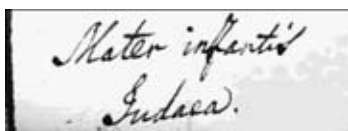 Mater infantis
Judaea.